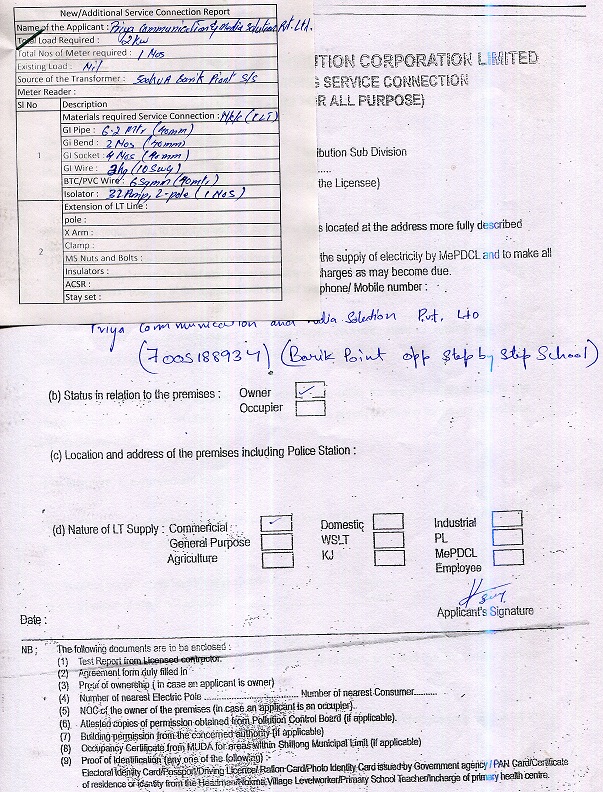 New/Additional Service Connection Report
Name of the Applicant : Priya Communication & Media Solution Pvt. Ltd.
Total Load Required : 2 KW
Total Nos of Meter required : 1 Nos
Existing Load : Nil
Source of the Transformer : Barik Point S/S
Meter Reader :
Sl No Description
Materials required Service Connection :
1
GI Pipe : 6.2 Mtr (40mm)
GI Bend : 2 Nos (40mm)
GI Socket : 4 Nos (40mm)
GI Wire : 2kg (10 Swg)
BTC/PVC Wire : 6 Sqmm (40mtr)
Isolator : 32 Amp, 2-pole (1 Nos)
2
Extension of LT Line :
pole :
X Arm :
Clamp :
MS Nuts and Bolts :
Insulators :
ACSR :
Stay set :
UTION CORPORATION LIMITED
SERVICE CONNECTION
R ALL PURPOSE)
ibution Sub Division
the Licensee)
s located at the address more fully described
the supply of electricity by MePDCL and to make all
harges as may become due.
phone/ Mobile number :
Priya Communication and Media Solution Pvt. Ltd
(7005188934) (Barik Point opp Step by Step School)
(b) Status in relation to the premises : Owner
Occupier
(c) Location and address of the premises including Police Station :
(d) Nature of LT Supply : Commericial Domestic Industrial
General Purpose WSLT PL
Agriculture KJ MePDCL
Employee
Applicant's Signature
Date :
NB ; The following documents are to be enclosed :
(1) Test Report from Licensed contractor.
(2) Agreement form duly filled in
(3) Proof of ownership ( in case an applicant is owner)
(4) Number of nearest Electric Pole .............................. Number of nearest Consumer..........
(5) NOC of the owner of the premises (in case an applicant is an occupier)
(6) Attested copies of permission obtained from Pollution Control Board (if applicable).
(7) Building permission from the concerned authority (if applicable)
(8) Occupancy Certificate from MUDA for areas within Shillong Municipal Limit (if applicable)
(9) Proof of Identification (any one of the following) :-
Electoral Identity Card/Passport/Driving Licence/ Ration Card/Photo Identity Card issued by Government agency / PAN Card/Certificate
of residence or identity from the Headmen/Nokma,Village Levelworker/Primary School Teacher/Incharge of primary health centre.